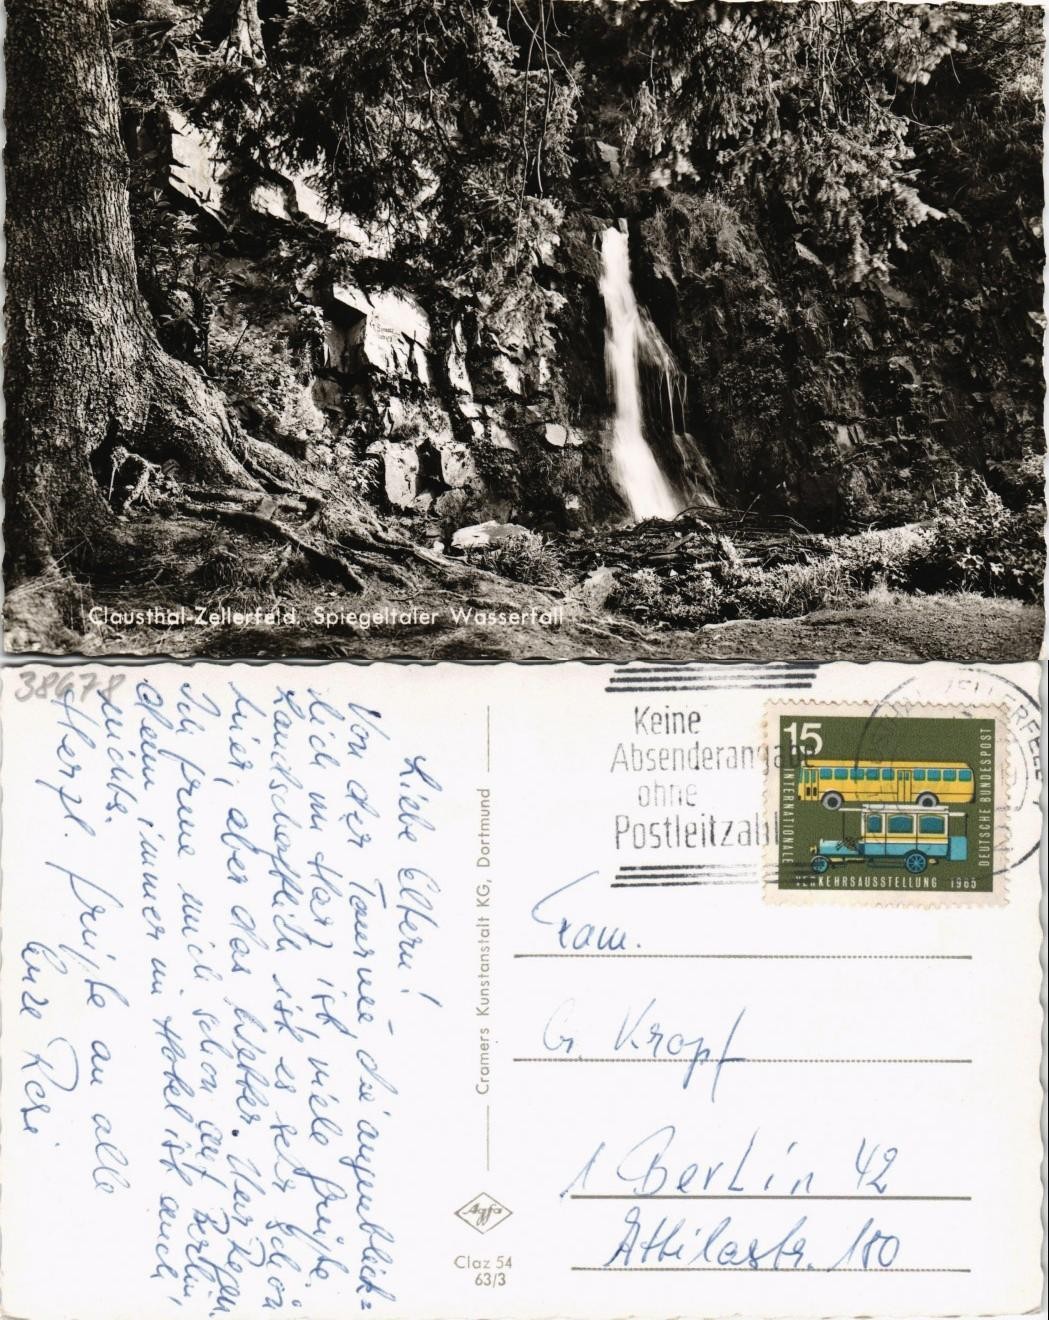 Clausthal-Zellerfeld. Spiegeltaler Wasserfall
38678
Liebe Eltern!
Von der Tournee, die augenblick=
lich im Harz ist, viele Grüße.
Landschaftlich ist es sehr schön
hier, aber das Wetter. Nur Regen.
Ich freue mich schon auf Berlin,
denn, immer im Hotel ist auch
nichts.
Herzl. Grüße an alle
Eure Rosi
Cramers Kunstanstalt KG, Dortmund
Agfa
Claz 54
63/3
Keine
Absenderangabe
ohne
Postleitzahl
15
INTERNATIONALE
VERKEHRSAUSSTELLUNG 1965
DEUTSCHE BUNDESPOST
ZELLERFELD
Fam.
G. Kropf
1 Berlin 42
Attilastr. 180